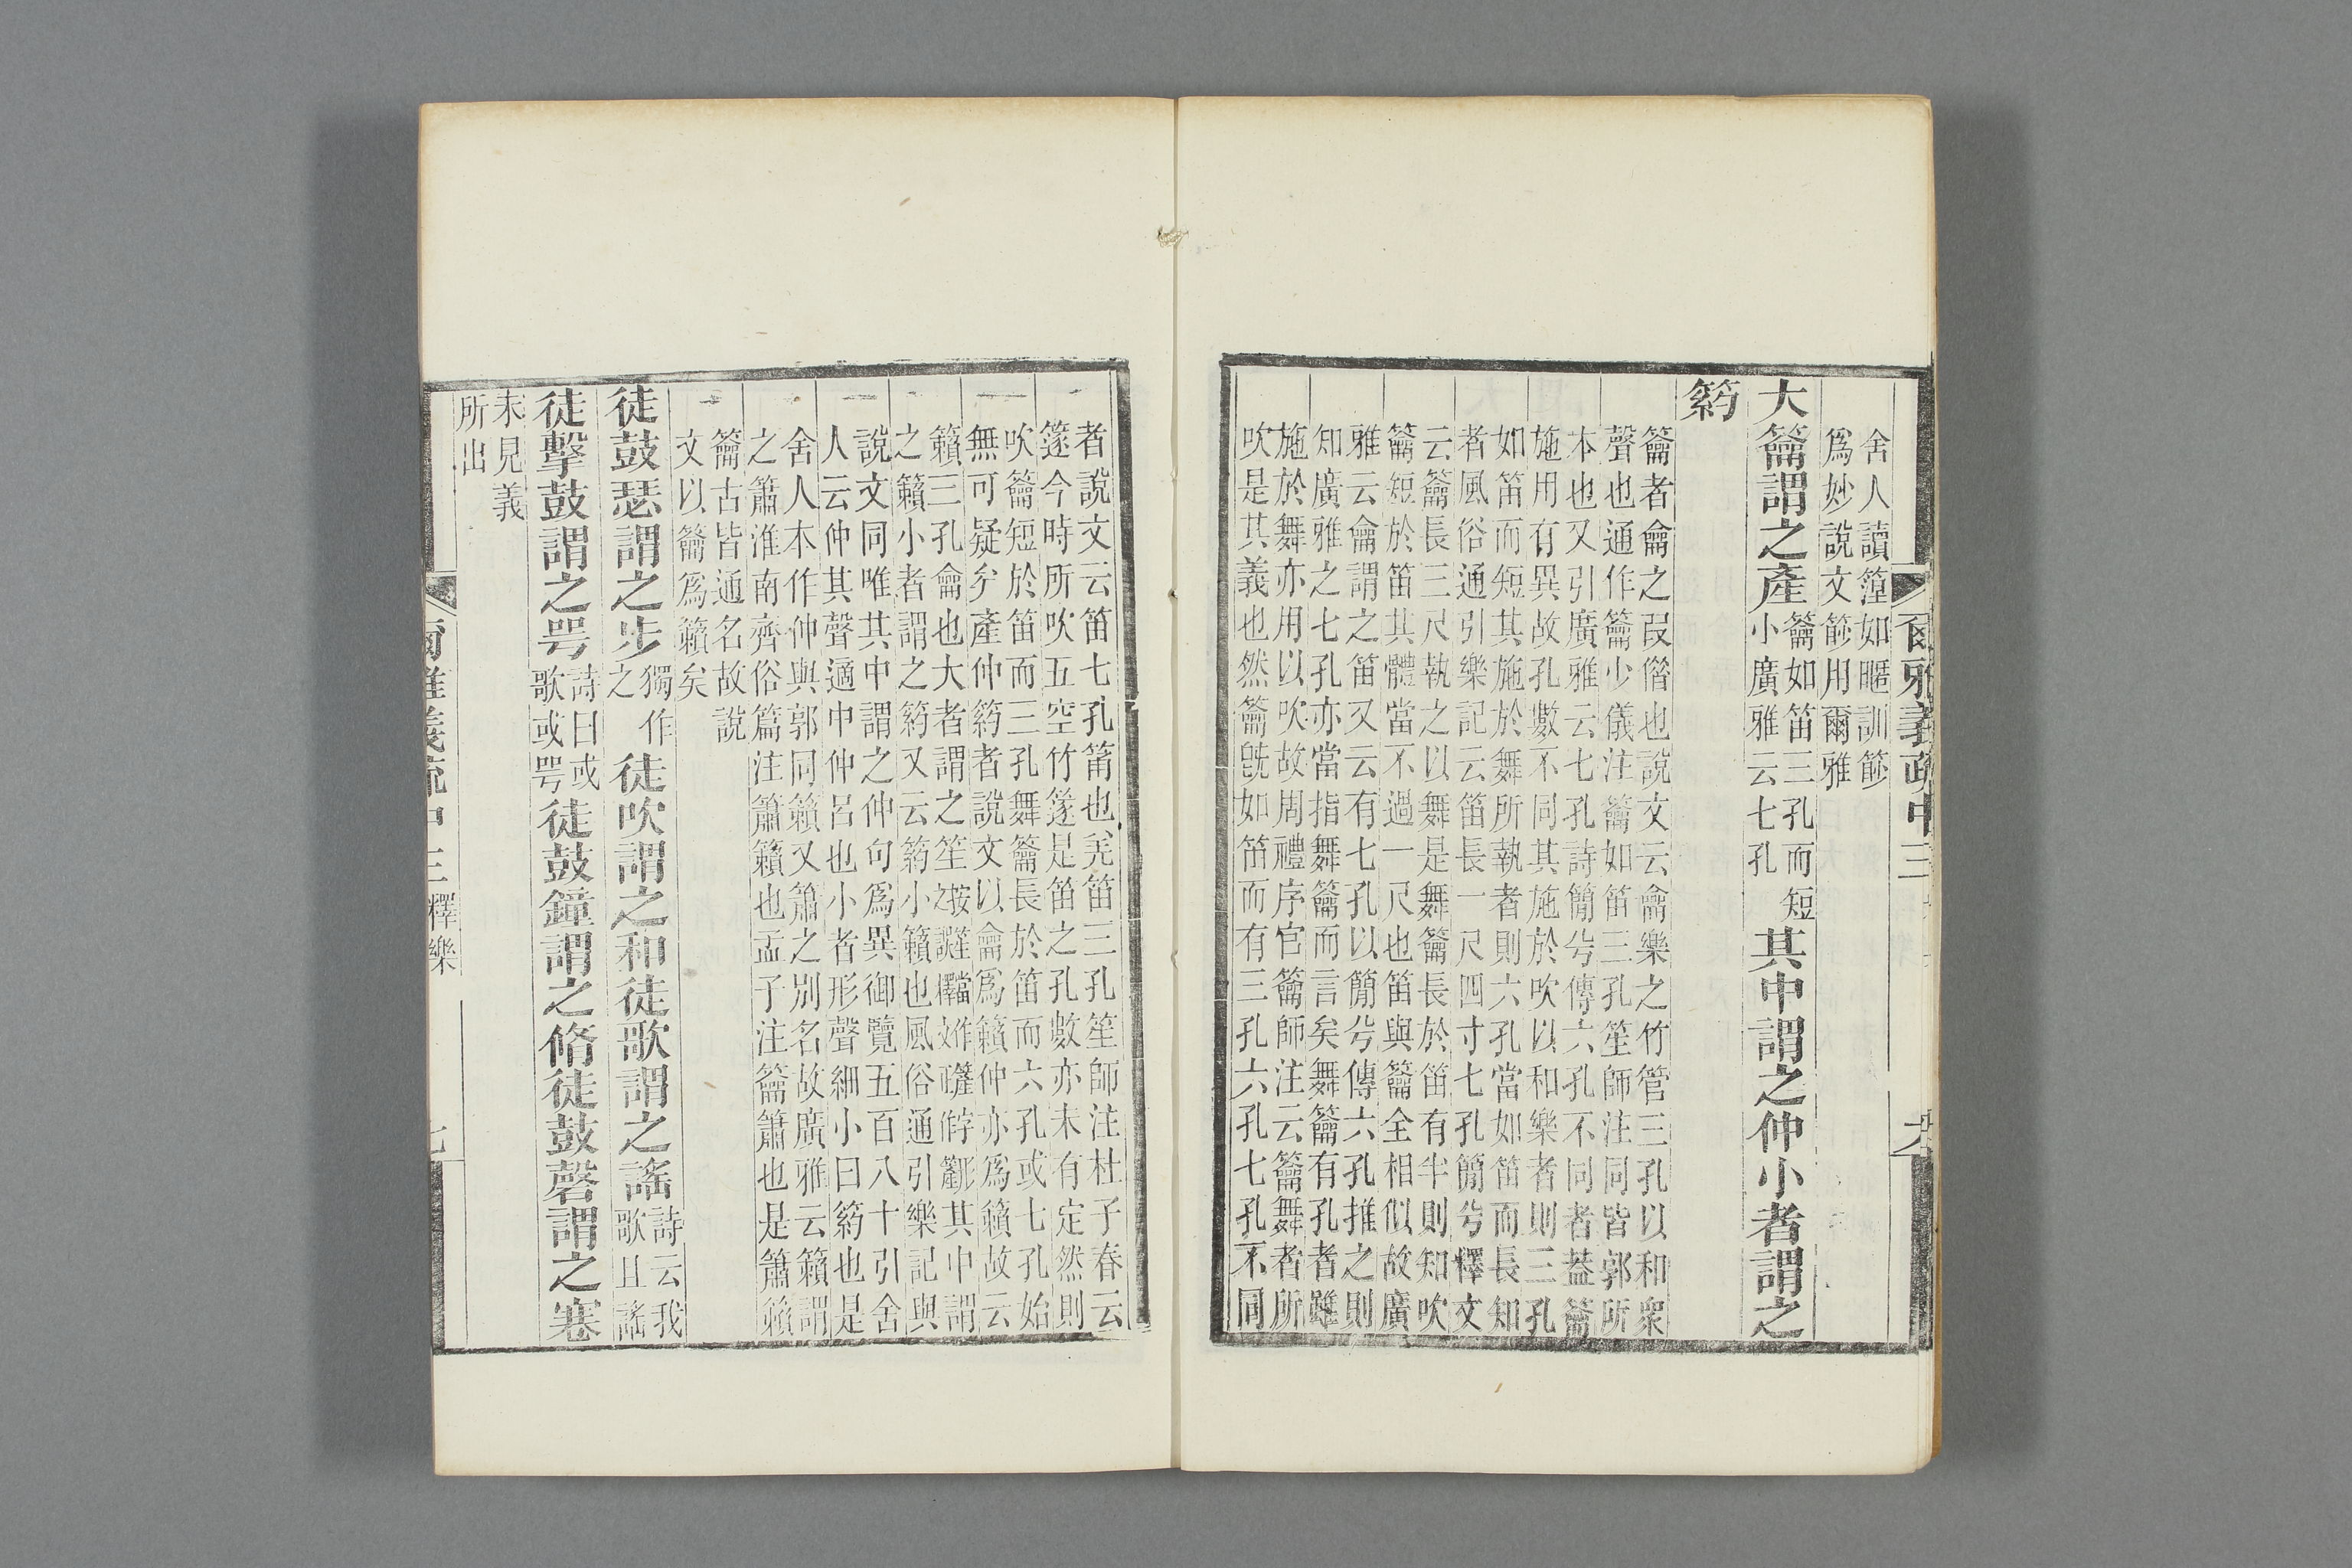 舍人讀篞如暱訓篎
爲妙說文篎用爾雅
大籥謂之產
籥如笛三孔而短
小廣雅云七孔
其中謂之仲小者謂之
箹
籥者龠之叚借也說文云龠樂之竹管三孔以和眾
聲也通作籥少儀注籥如笛三孔笙師注同皆郭所
本也又引廣雅云七孔詩簡兮傳六孔不同者葢籥
施用有異故孔數不同其施於吹以和樂者則三孔
如笛而短其施於舞所執者則六孔當如笛而長知
者風俗通引樂記云笛長一尺四寸七孔簡兮釋文
云籥長三尺執之以舞是舞籥長於笛有半則知吹
籥短於笛其體當不過一尺也笛與籥全相似故廣
雅云龠謂之笛又云有七孔以簡兮傳六孔推之則
知廣雅之七孔亦當指舞籥而言矣舞籥有孔者雖
施於舞亦用以吹故周禮序官籥師注云籥舞者所
吹是其義也然籥旣如笛而有三孔六孔七孔不同
爾雅義疏中三
者說文云笛七孔筩也羌笛三孔笙師注杜子春云
篴今時所吹五空竹篴是笛之孔數亦未有定然則
吹籥短於笛而三孔舞籥長於笛而六孔或七孔始
無可疑矣產仲箹者說文以龠爲籟仲亦爲籟故云
籟三孔龠也大者謂之笙
其中謂
之籟小者謂之箹又云箹小籟也風俗通引樂記與
說文同唯其中謂之仲句爲異御覽五百八十引舍
人云仲其聲適中仲呂也小者形聲細小曰箹也是
舍人本作仲與郭同籟又簫之別名故廣雅云籟謂
之簫淮南齊俗篇注簫籟也孟子注籥簫也是簫籟
籥古皆通名故說
文以籥爲籟矣
徒鼓瑟謂之步
獨作
之
徒吹謂之和徒歌謂之謠
詩云我
歌且謠
徒擊鼓謂之咢
詩曰或
歌或咢
徒鼓鐘謂之脩徒鼓磬謂之寋
未見義
所出
爾雅義疏中三釋樂 七